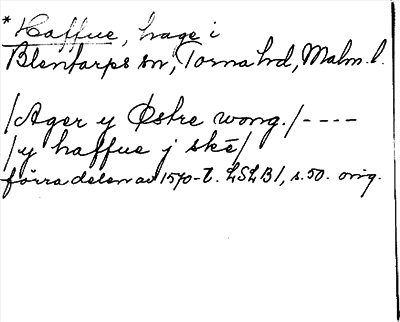 *Haffue, hage i
Blentarps sn, Torna hd, Malm. l.
/Ager y Østre wong./----
/y haffue j skē/
förra delen av 1570-t. LSLB1, s.50. orig.